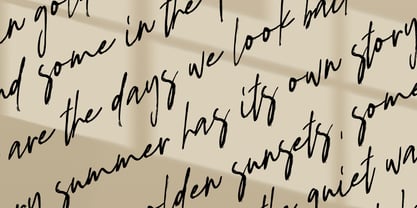 in gol
nd some in the
are the days we look back
ry summer has its own story
olden sunsets, some
the quiet wa